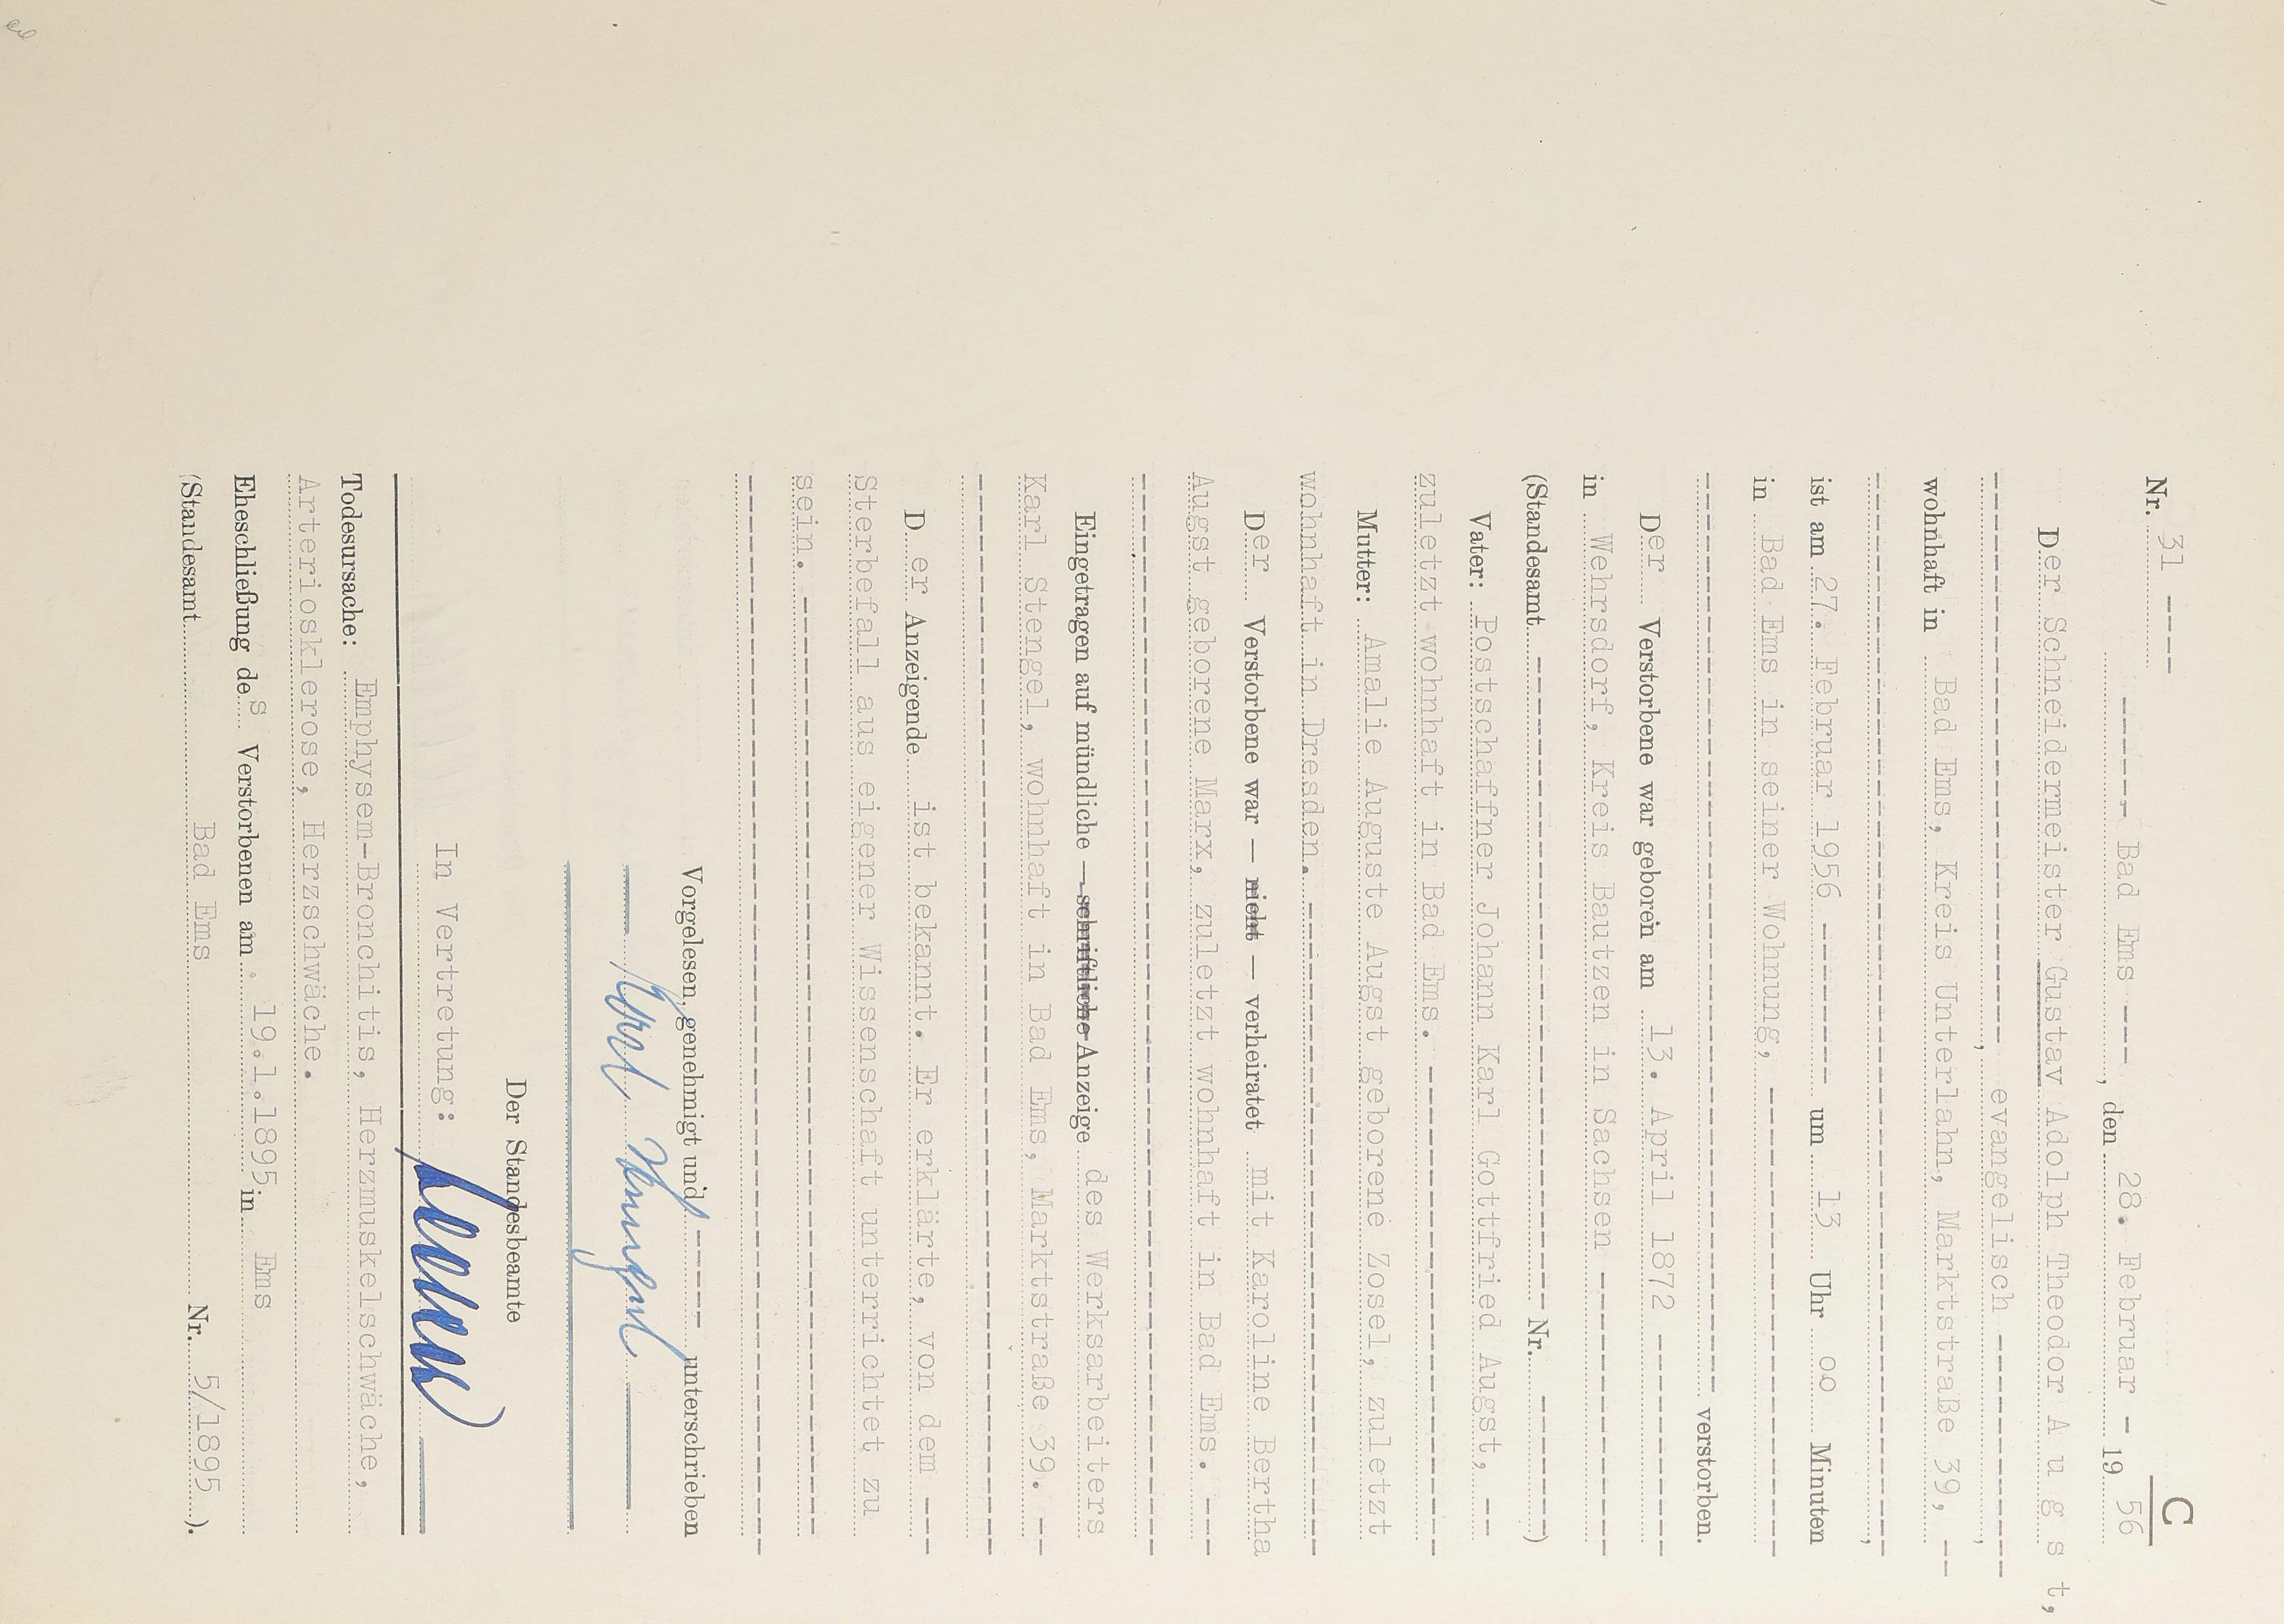 C
Nr. 31 ----
------- Bad Ems ---, den 28. Februar - 19 56
Der Schneidermeister Gustav Adolph Theodor A u g s t,
---------------------------, evangelisch --------------,
wohnhaft in Bad Ems, Kreis Unterlahn, Marktstraße 39, --
---------------------------------------------------,
ist am 27. Februar 1956 --------- um 13 Uhr oo Minuten
in Bad Ems in seiner Wohnung, -------------------------
--------------------------------------------- verstorben.
Der Verstorbene war geboren am 13. April 1872 ------------
in Wehrsdorf, Kreis Bautzen in Sachsen ----------------
(Standesamt ------------------------------- Nr. --------)
Vater: Postschaffner Johann Karl Gottfried Augst, ---
zuletzt wohnhaft in Bad Ems. --------------------------
Mutter: Amalie Auguste Augst geborene Zosel, zuletzt
wohnhaft in Dresden. ----------------------------------
Der Verstorbene war — nicht — verheiratet mit Karoline Bertha
Augst geborene Marx, zuletzt wohnhaft in Bad Ems. ---
-------------------------------------------------------
Eingetragen auf mündliche — schriftliche Anzeige des Werksarbeiters
Karl Stengel, wohnhaft in Bad Ems, Marktstraße 39. --
-------------------------------------------------------
D er Anzeigende ist bekannt. Er erklärte, von dem ---
Sterbefall aus eigener Wissenschaft unterrichtet zu
sein. -------------------------------------------------
-------------------------------------------------------
Vorgelesen, genehmigt und ----- unterschrieben
Karl Stengel
Der Standesbeamte
In Vertretung:
Todesursache: Emphysem-Bronchitis, Herzmuskelschwäche,
Arteriosklerose, Herzschwäche.
Eheschließung des Verstorbenen am 19.1.1895 in Ems
(Standesamt Bad Ems Nr. 5/1895 ).